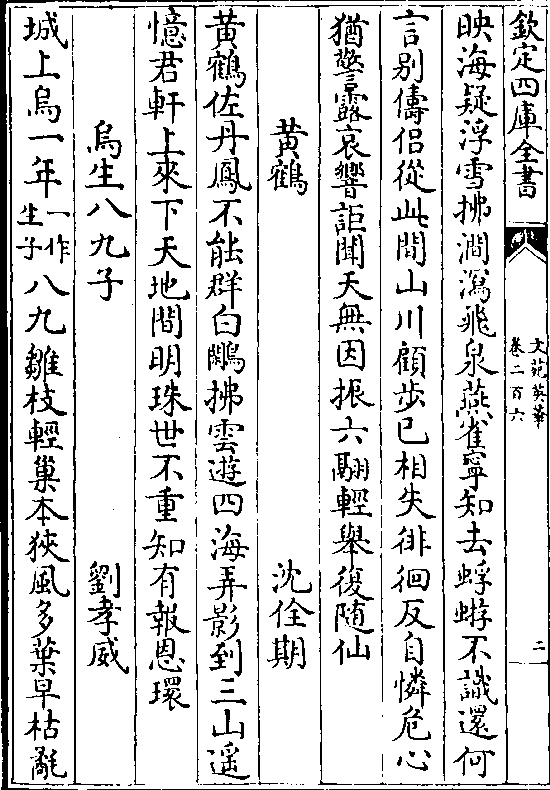 欽定四庫全書
文苑英華
卷二百六
二
映海疑浮雪拂澗瀉飛泉燕雀寧知去蜉蝣不識還何
言别儔侣從此間山川顧步已相失徘徊反自憐危心
猶警露哀響詎聞天無因振六翮輕舉復隨仙
黄鶴 沈佺期
黄鶴佐丹鳳不能群白鷴拂雲遊四海弄影到三山遥
憶君軒上來下天地間明珠世不重知有報恩環
烏生八九子 劉孝威
城上烏一年一作生子八九雛枝輕巢本狹風多葉早枯氄